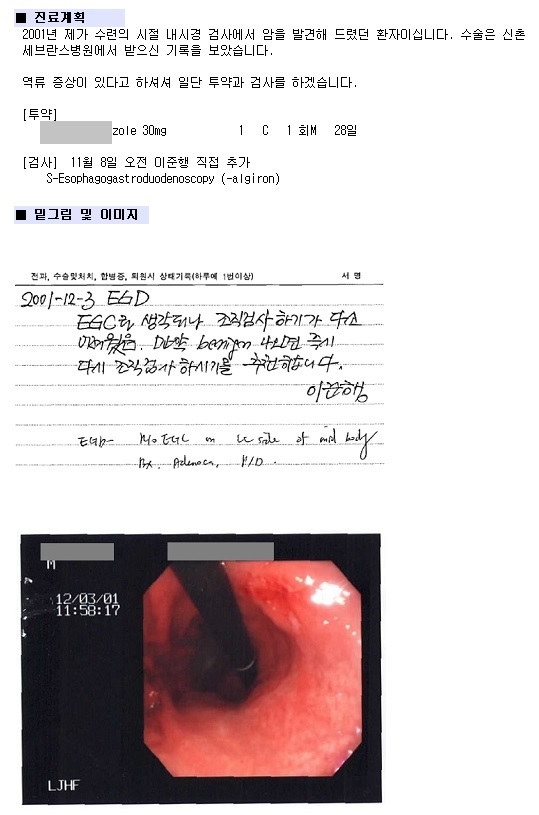 ■ 진료계획
2001년 제가 수련의 시절 내시경 검사에서 암을 발견해 드렸던 환자이십니다. 수술은 신촌
세브란스병원에서 받으신 기록을 보았습니다.
역류 증상이 있다고 하셔서 일단 투약과 검사를 하겠습니다.
[투약]
zole 30mg 1 C 1 회M 28일
[검사] 11월 8일 오전 이준행 직접 추가
S-Esophagogastroduodenoscopy (-algiron)
■ 밑그림 및 이미지
전과, 수술및처치, 합병증, 퇴원시 상태기록(하루에 1번이상) 서 명
2001-12-3 EGD
EGC로 생각되나 조직검사 하기가 다소
어려웠음. 만약 benign 나오면 즉시
다시 조직검사 하시기를 추천합니다.
이준행
EGD- R/o EGC on LC side of mid body
Bx. Adenoca, P/D.
M
12/03/01
11:58:17
LJHF